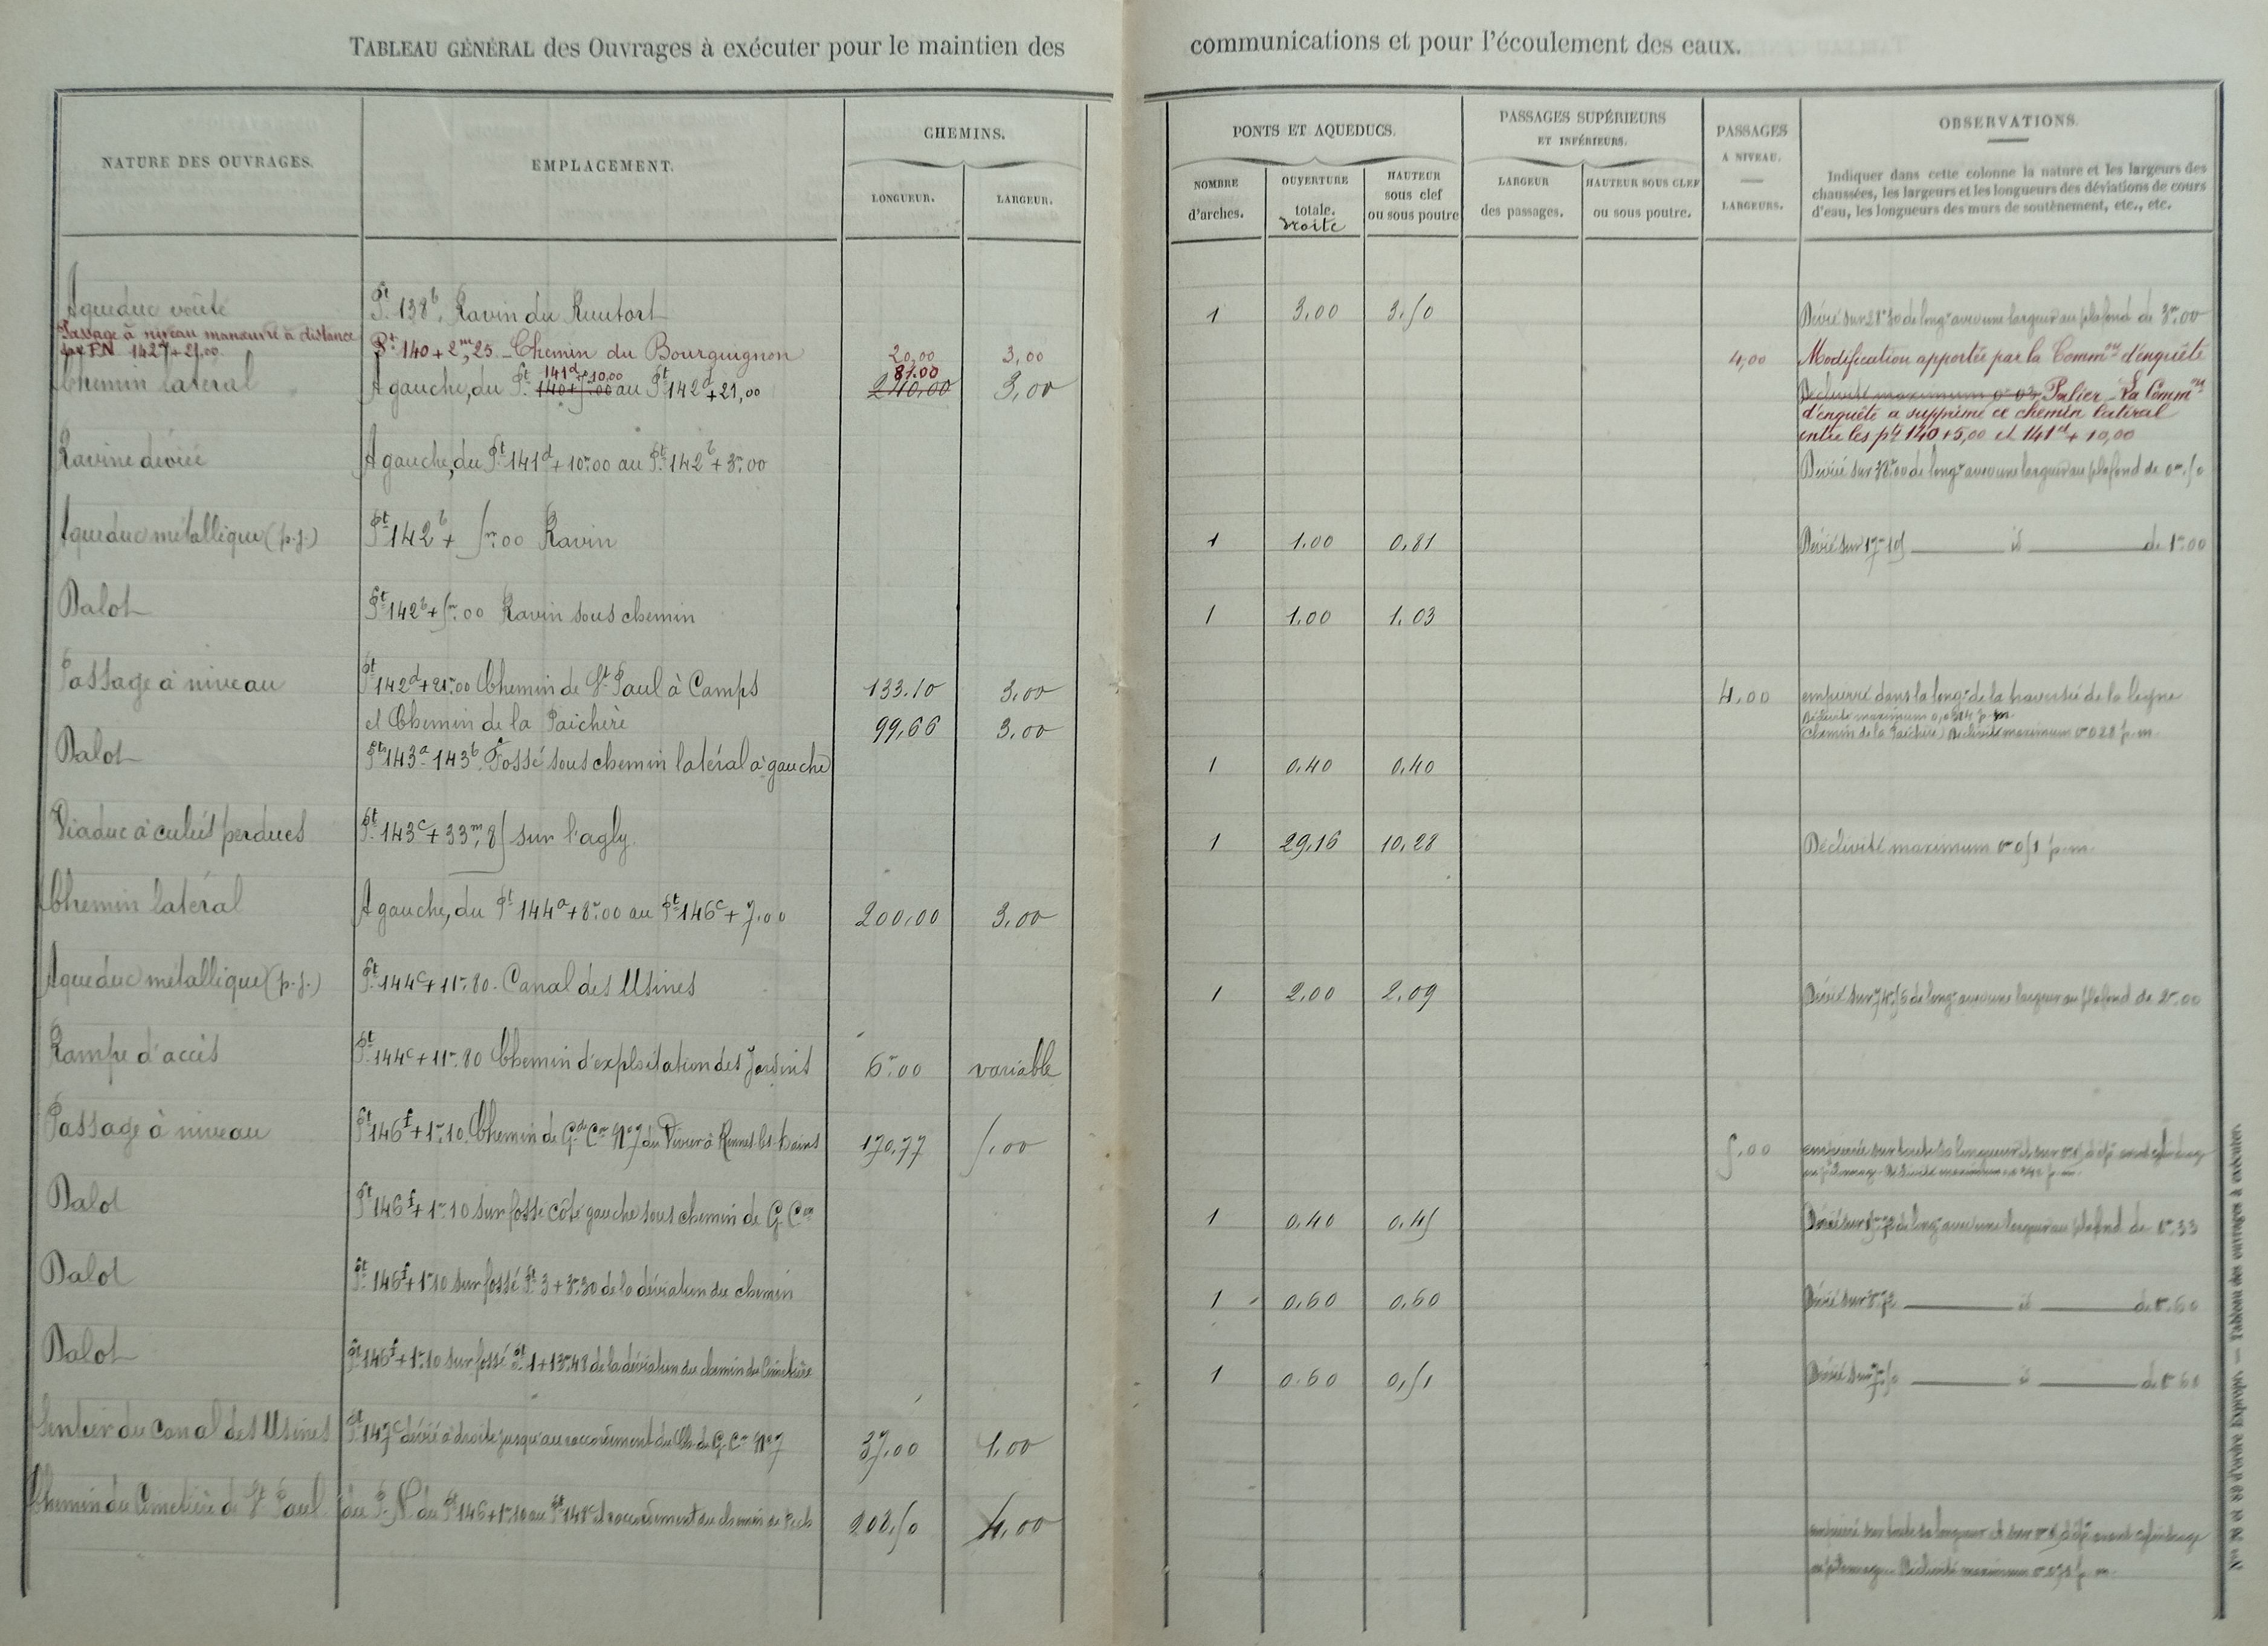 TABLEAU GÉNÉRAL des Ouvrages à exécuter pour le maintien des communications et pour l'écoulement des eaux.
NATURE DES OUVRAGES.
EMPLACEMENT.
CHEMINS.
LONGUEUR.
LARGEUR.
PONTS ET AQUEDUCS.
NOMBRE
d'arches.
OUVERTURE
totale.
droite
HAUTEUR
sous clef
ou sous poutre
PASSAGES SUPÉRIEURS
ET INFÉRIEURS.
LARGEUR
des passages.
HAUTEUR SOUS CLEF
ou sous poutre.
PASSAGES
A NIVEAU.
LARGEURS.
OBSERVATIONS.
Indiquer dans cette colonne la nature et les largeurs des
chaussées, les largeurs et les longueurs des déviations de cours
d'eau, les longueurs des murs de soutènement, etc., etc.
Aqueduc voûté Pt 138b. Ravin du 1 3.00 3.50 Dévié sur 21m30 de longr avec une largeur au plafond de 3m.00
Passage à niveau manœuvré à distance
par P.N 142d+21.00 Pt 140+2m,25 _ Chemin du Bourguignon 20,00 3,00 4,00 Modification apportée par la Common d'enquête
Chemin latéral A gauche, du Pt 140+5.00 141d+10,00 au Pt 142d+21,00 240,00 81.00 3,00 Déclivité maximum 0m03 Palier _ La Common
d'enquête a supprimé ce chemin latéral
entre les pts 140+5,00 et 141d+10,00
Ravine déviée A gauche, du Pt 141d+10m00 au Pt 142b+3m.00 Dévié sur 38m00 de longr avec une largeur au plafond de 0m.50
Aqueduc métallique (p.s.) Pt 142b + 5m.00 Ravin 1 1.00 0.81 Dévié sur 17m10 id de 1m.00
Dalot Pt 142b+5m.00 Ravin sous chemin 1 1.00 1.03
Passage à niveau Pt 142d+21m.00 Chemin de St Paul à Camps 133.10 3.00 4.00 empierré dans la longr de la traversée de la ligne
Déclivité maximum p.m
et Chemin de la Paichère 99,66 3.00 Chemin de la Paichère) Déclivité maximum 0m028 p.m
Dalot Pts 143a-143b. Fossé sous chemin latéral à gauche 1 0.40 0.40
Viaduc à culées perdues Pt 143c+33m,85 sur l'agly. 1 29.16 10.28 Déclivité maximum 0m051 p.m.
Chemin latéral A gauche, du Pt 144a+8m.00 au Pt 146c+7.00 200.00 3.00
Aqueduc métallique (p.s.) Pt 144c+11m.80. Canal des Usines 1 2.00 2.09 Dévié sur de longr avec une largeur au plafond de 2m.00
Rampe d'accès Pt 144c+11m.80 Chemin d'exploitation des Jardins 6m.00 variable
Passage à niveau Pt 146f+1m.10. Chemin de Gde Con No 7 du Vivier à Rennes les bains 170,77 5.00 5.00 empierré sur toute sa longueur et sur
Déclivité maximum p.m.
Dalot Pt 146f+1m.10 sur fossé côté gauche sous chemin de G. Con 1 0.40 0.45 Dévié sur de longr avec une largeur au plafond de 0m.33
Dalot Pt 146f+1m10 sur fossé Pt 3+3m.30 de la déviation du chemin 1 0.60 0.60 Dévié sur id de 0m.60
Dalot Pt 146f+1m.10 sur fossé Pt 1+13m.48 de la déviation du chemin du Cimetière 1 0.60 0.51 Dévié sur id de 0m60
Sentier du canal des Usines Pt 147c dévié à droite jusqu'au raccordement du Ch. de G. Con No 7 37.00 1.00
Chemin du Cimetière de St Paul du P.N. du Pt 146+1m.10 au Pt 148c et raccordement du chemin de 208.50 4.00 empierré sur toute sa longueur et sur
Déclivité maximum p.m.
Nos 28 et 89 d'ordre Exprops. — Tableau des ouvrages à exécuter.